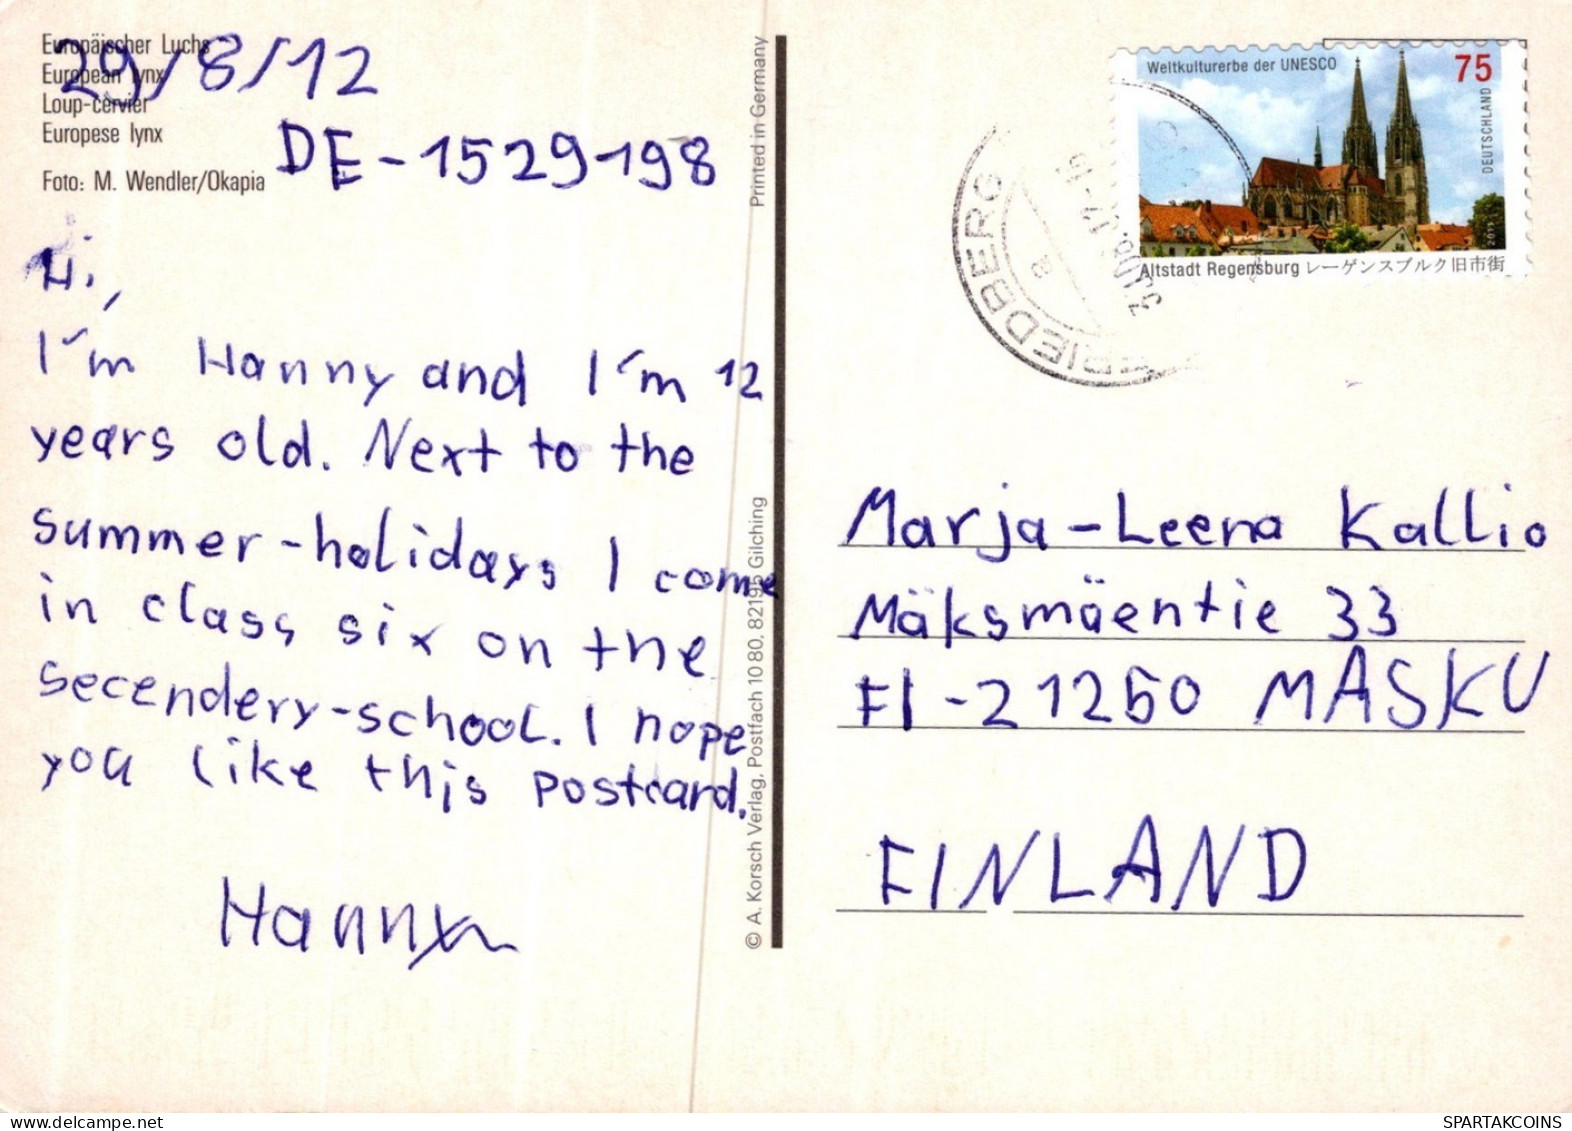 Europäischer Luchs
European lynx
Loup-cervier
Europese lynx
Foto: M. Wendler/Okapia
29/8/12
DE-1529198
Hi,
I'm Hanny and I'm 12
years old. Next to the
summer-holidays I come
in class six on the
secendery-school. I hope
you like this postcard.
Hanny
Printed in Germany
© A. Korsch Verlag, Postfach 10 80, 82195 Gilching
Weltkulturerbe der UNESCO
75
DEUTSCHLAND
2011
Altstadt Regensburg レーゲンスブルク旧市街
FRIEDBERG
Marja-Leena Kallio
Mäksmäentie 33
FI-21250 MASKU
FINLAND
SPARTAKCOINS
www.delcampe.net